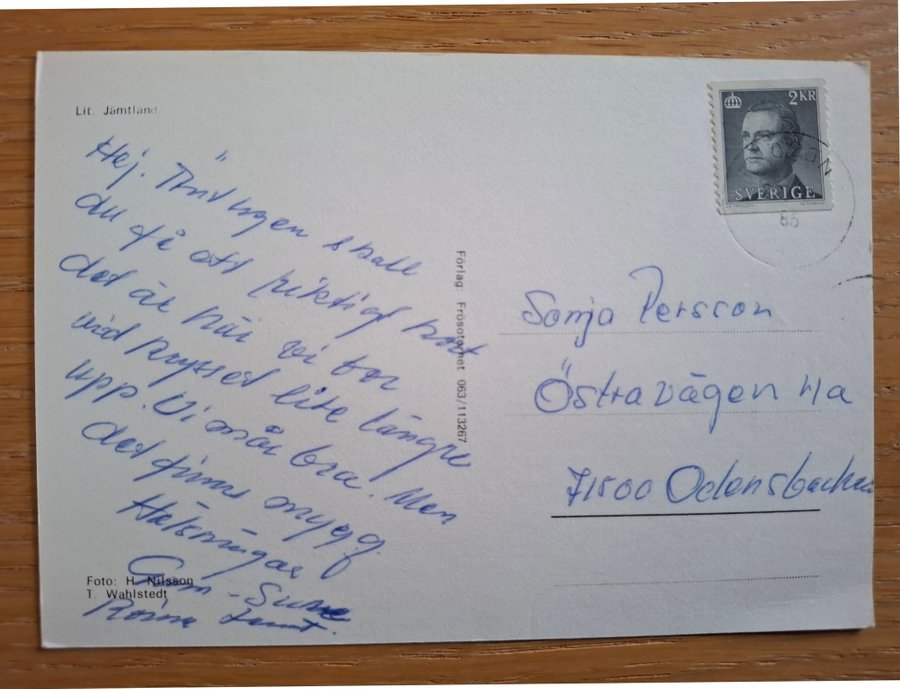 Lit. Jämtland
Hej. Äntligen skall
du få ett riktigt kort
det är här vi bor
vid krysset lite längre
upp. Vi mår bra. Men
det finns mygg.
Hälsningar
Sune
Foto: H. Nilsson
T. Wahlstedt
Förlag: Frösotornet 063/113267
2KR
SVERIGE
86
Sonja Persson
Östravägen 4a
71500 Odensbacken